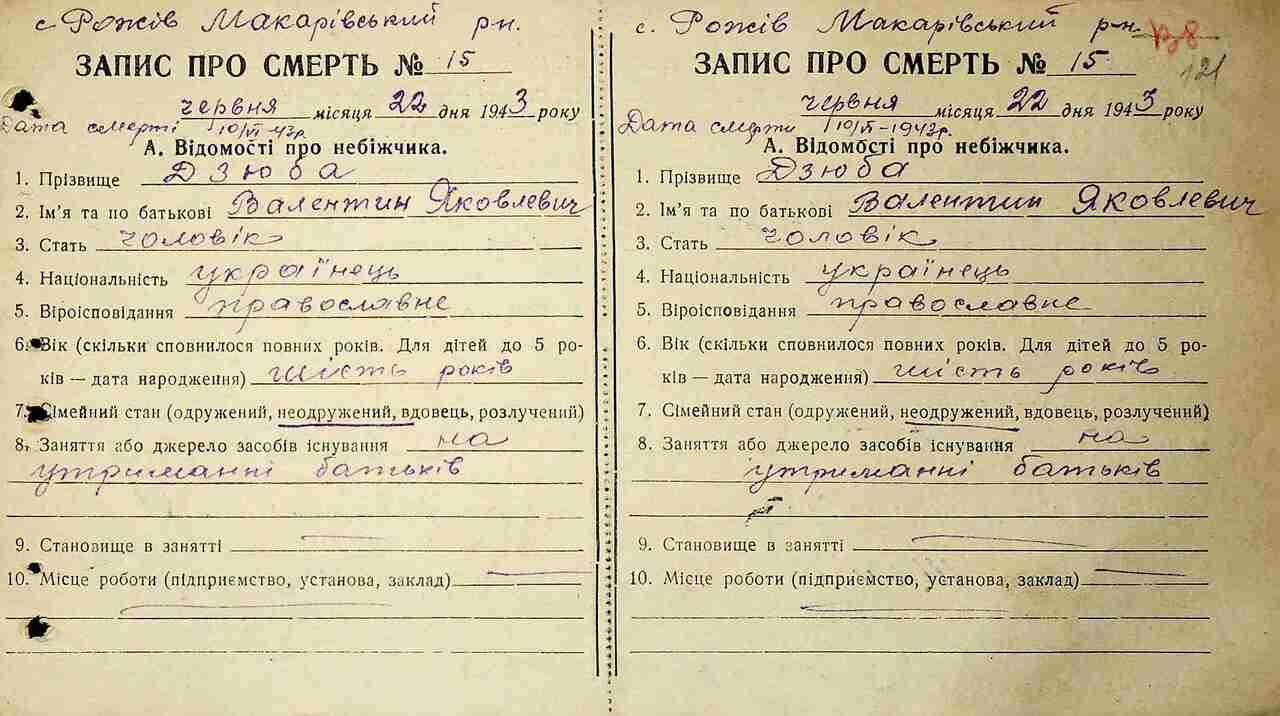 с Рожів Макарівський р-н.
ЗАПИС ПРО СМЕРТЬ № 15
червня місяця 22 дня 1943 року
Дата смерті 10/VI-43р.
А. Відомості про небіжчика.
1. Прізвище Дзюба
2. Ім'я та по батькові Валентин Яковлевич
3. Стать чоловік
4. Національність українець
5. Віроісповідання православне
6. Вік (скільки сповнилося повних років. Для дітей до 5 ро-
ків — дата народження) шість років
7. Сімейний стан (одружений, неодружений, вдовець, розлучений)
8. Заняття або джерело засобів існування на
утриманні батьків
9. Становище в занятті
10. Місце роботи (підприємство, установа, заклад)
с. Рожів Макарівський р-н.
В8
121
ЗАПИС ПРО СМЕРТЬ № 15
червня місяця 22 дня 1943 року
Дата смерти 10/VI-1943р.
А. Відомості про небіжчика.
1. Прізвище Дзюба
2. Ім'я та по батькові Валентин Яковлевич
3. Стать чоловік
4. Національність українець
5. Віроісповідання православне
6. Вік (скільки сповнилося повних років. Для дітей до 5 ро-
ків — дата народження) шість років
7. Сімейний стан (одружений, неодружений, вдовець, розлучений)
8. Заняття або джерело засобів існування на
утриманні батьків
9. Становище в занятті
10. Місце роботи (підприємство, установа, заклад)